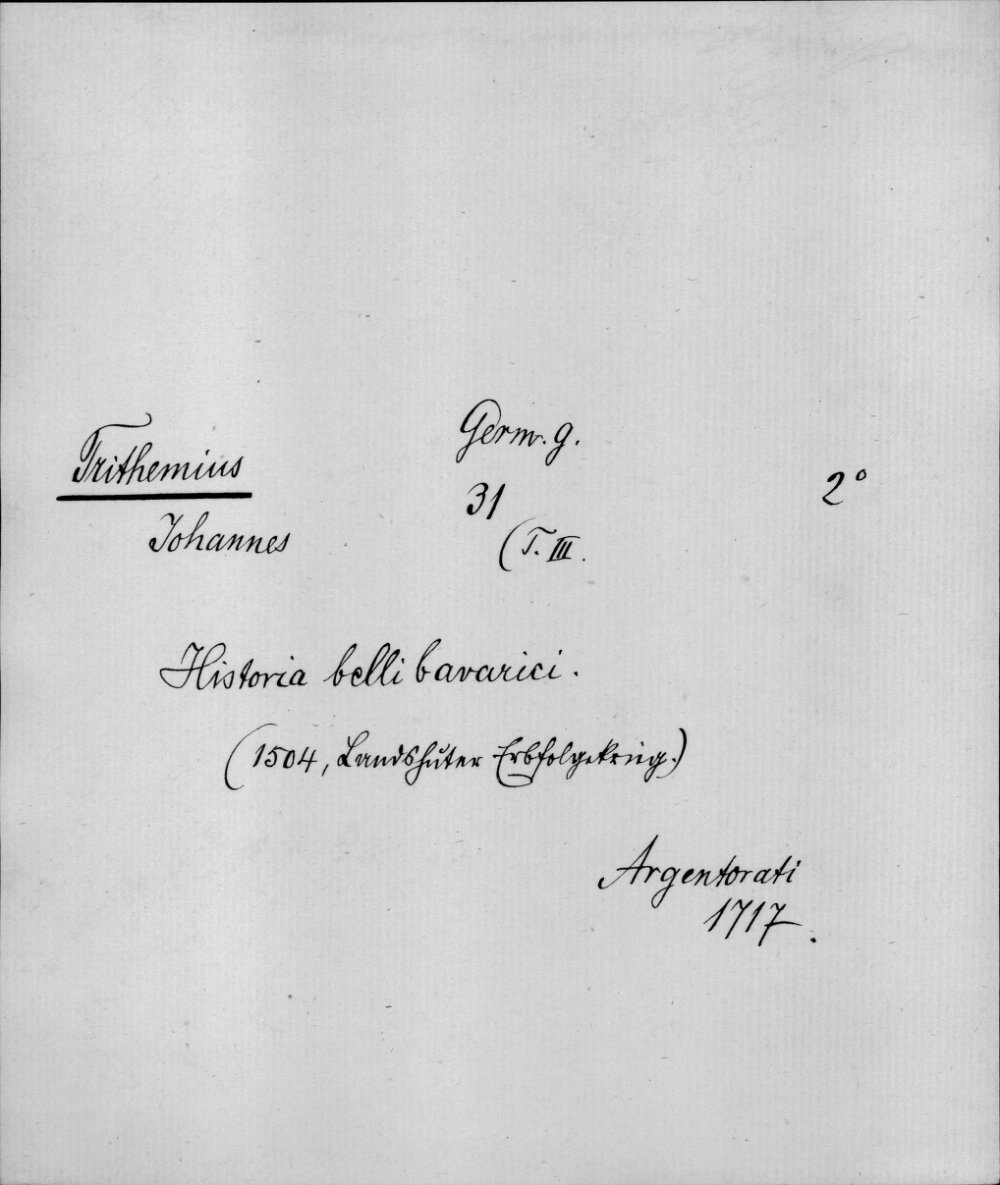 Trithemius
Johannes
Germ. g.
31
(T. III.
2°
Historia belli bavarici.
(1504, Landshuter Erbfolgekrieg.)
Argentorati
1717.